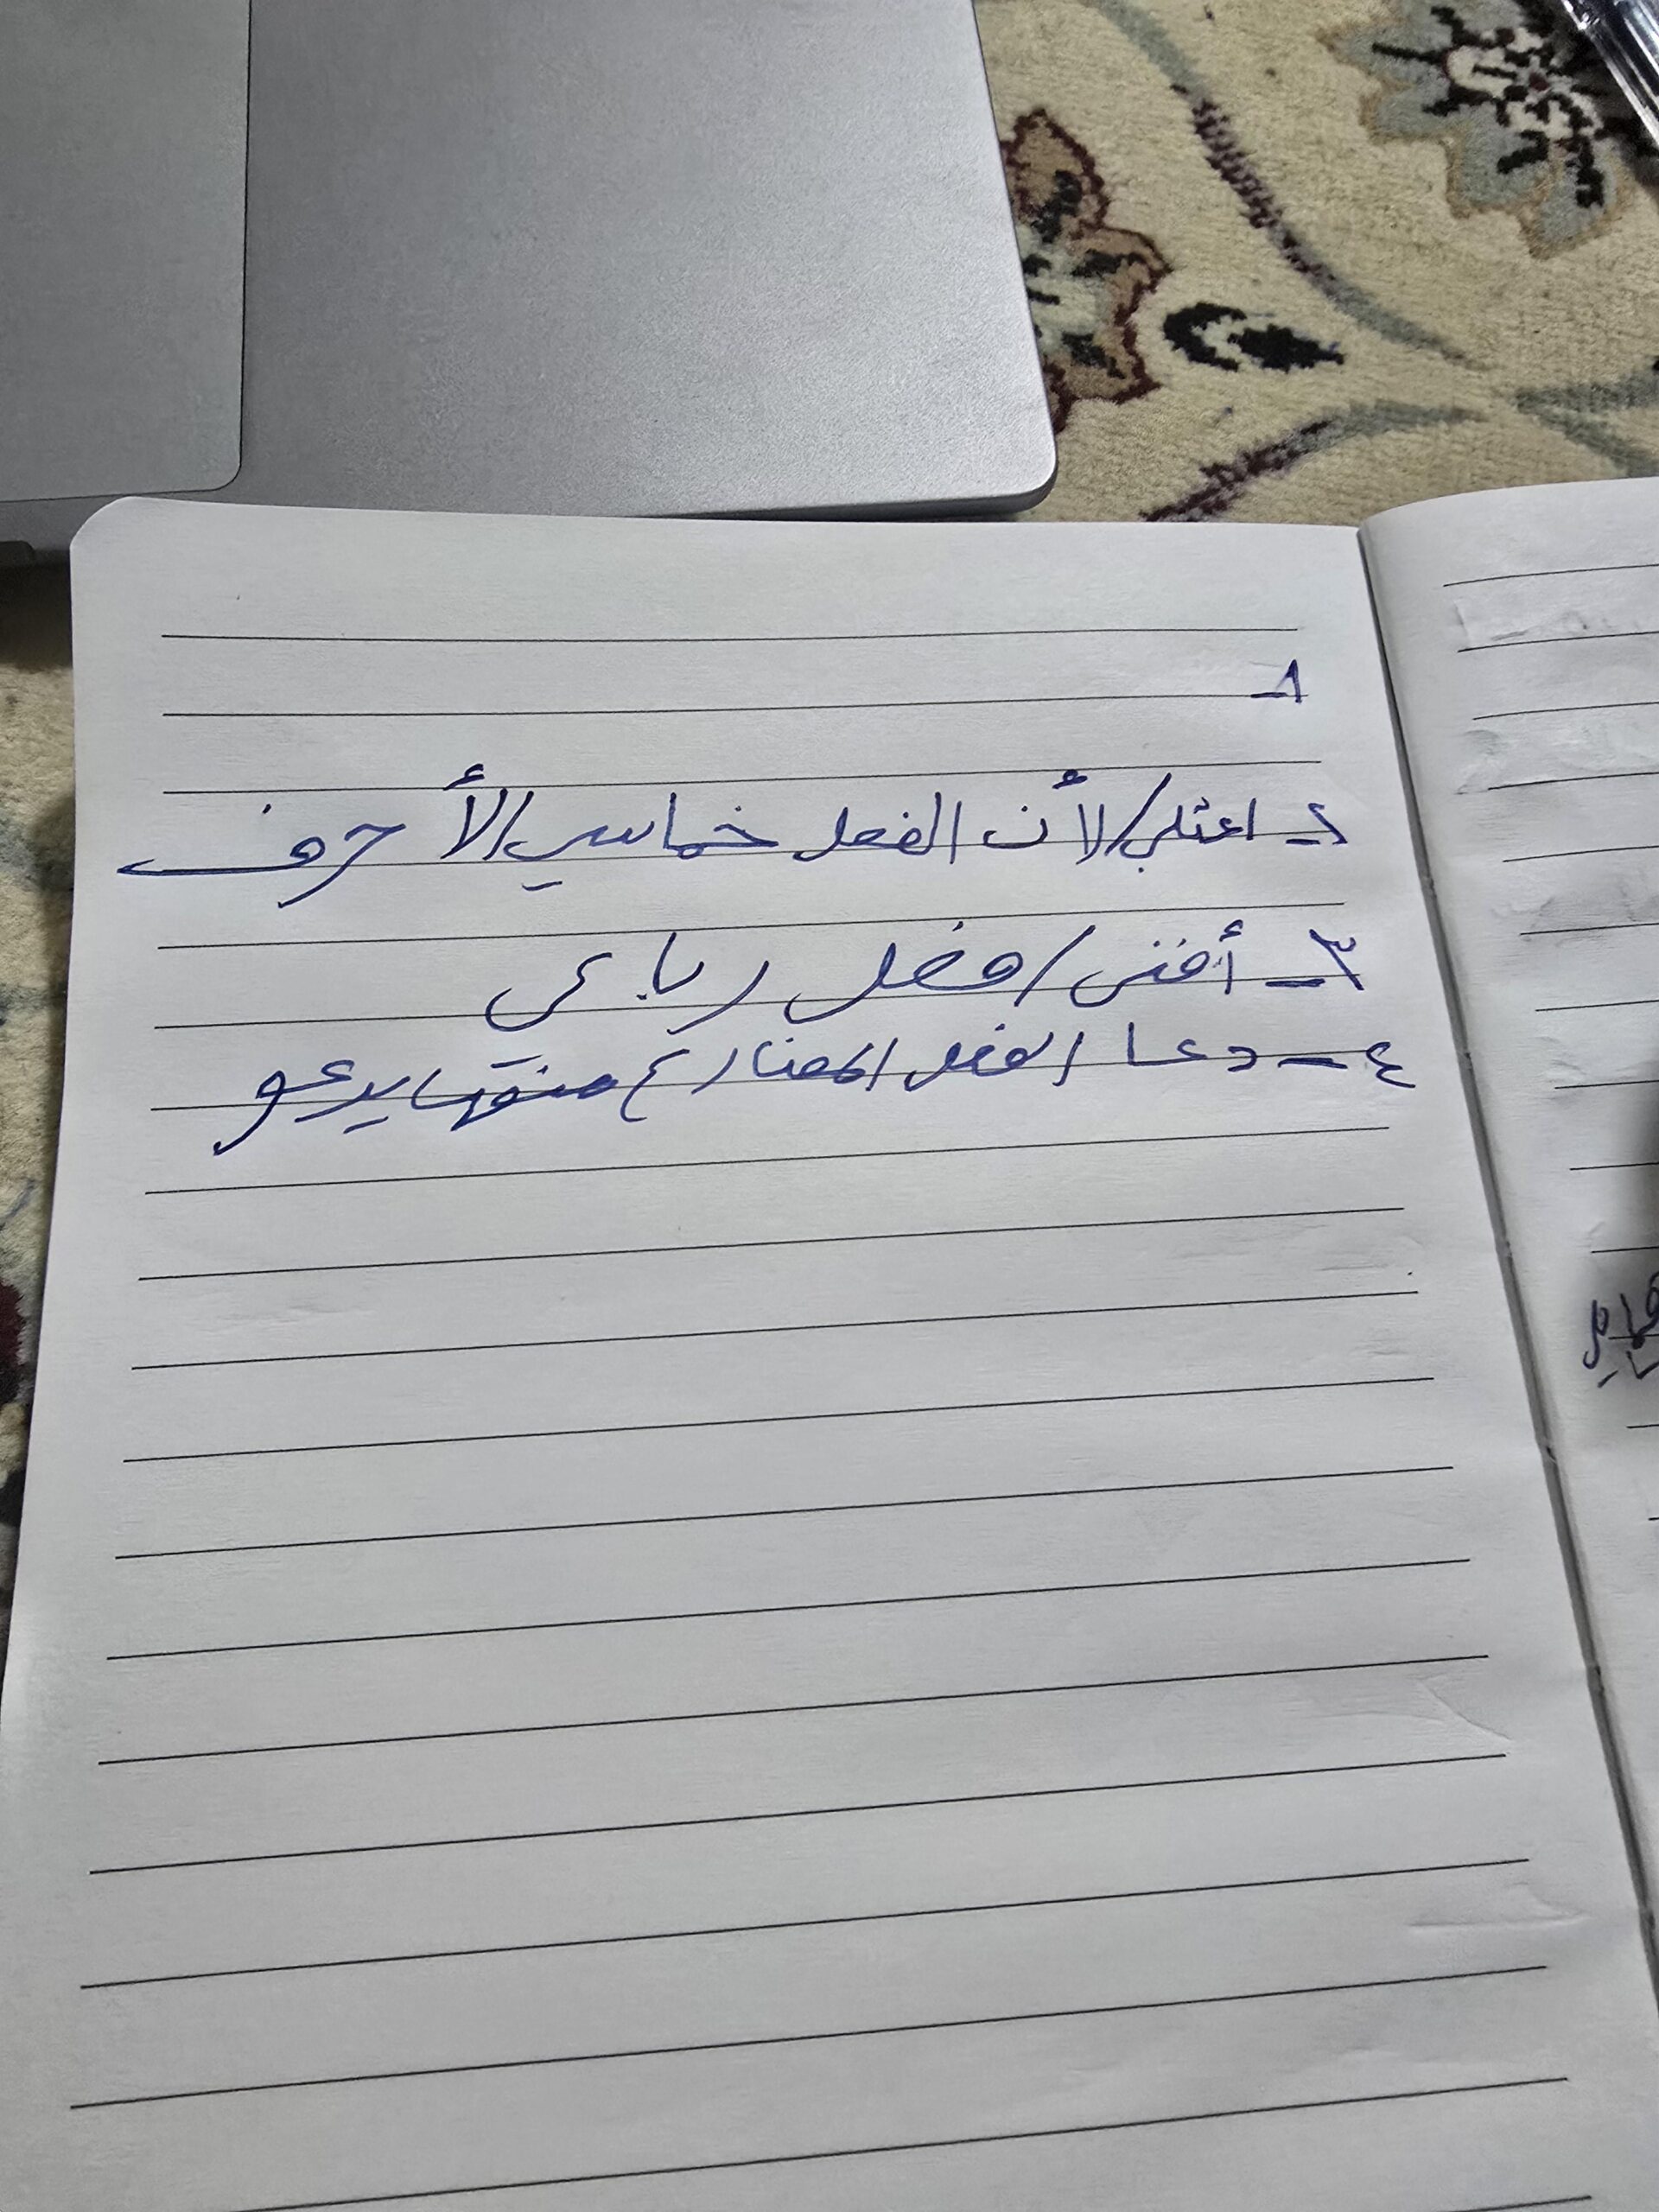 ١-
٢- اعتلى/ لأن الفعل خماسي الأحرف
٣- أفنى/ فعل رباعي
٤- دعا الفعل المضارع منها يدعو